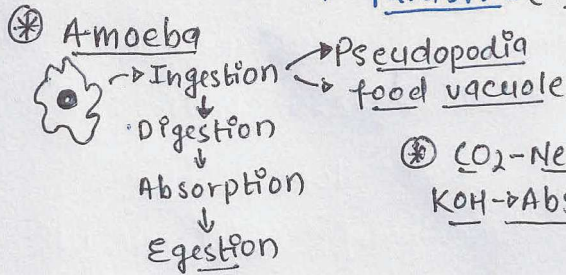 Amoeba
Ingestion → Pseudopodia
→ food vacuole
↓
Digestion
↓
Absorption
↓
Egestion
CO2-Ne
KOH→Abs